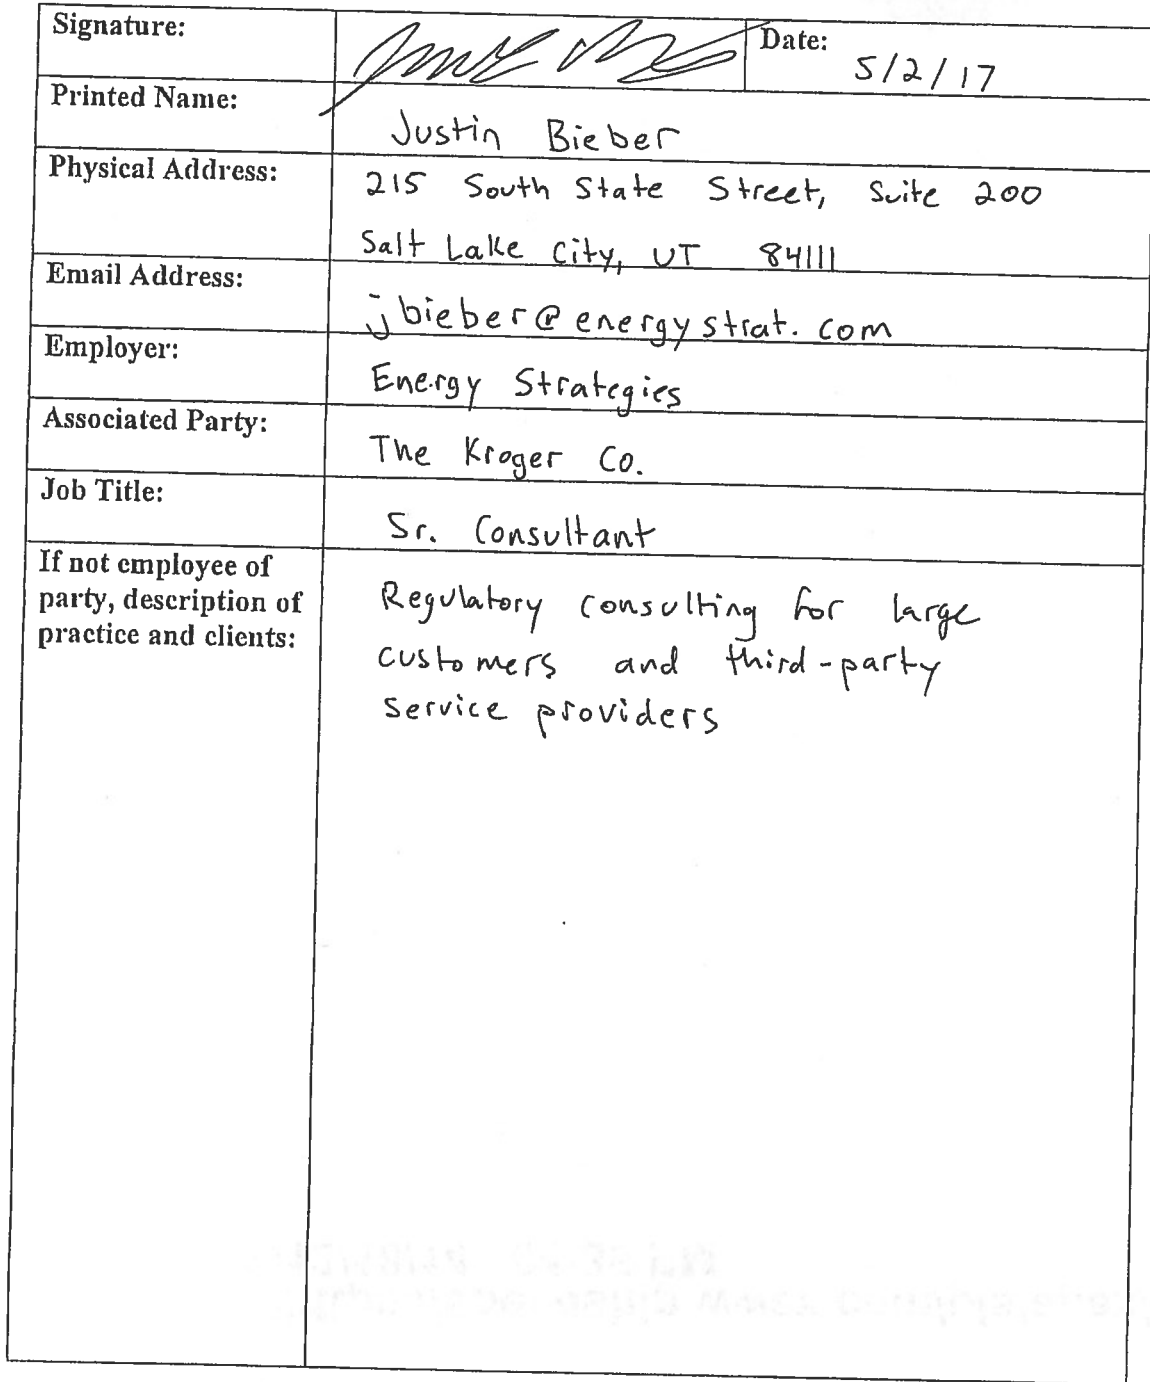 Signature:
Date:
5/2/17
Printed Name:
Justin Bieber
Physical Address:
215 South State Street, Suite 200
Salt Lake City, UT 84111
Email Address:
jbieber@energystrat.com
Employer:
Energy Strategies
Associated Party:
The Kroger Co.
Job Title:
Sr. Consultant
If not employee of
party, description of
practice and clients:
Regulatory consulting for large
customers and third-party
service providers